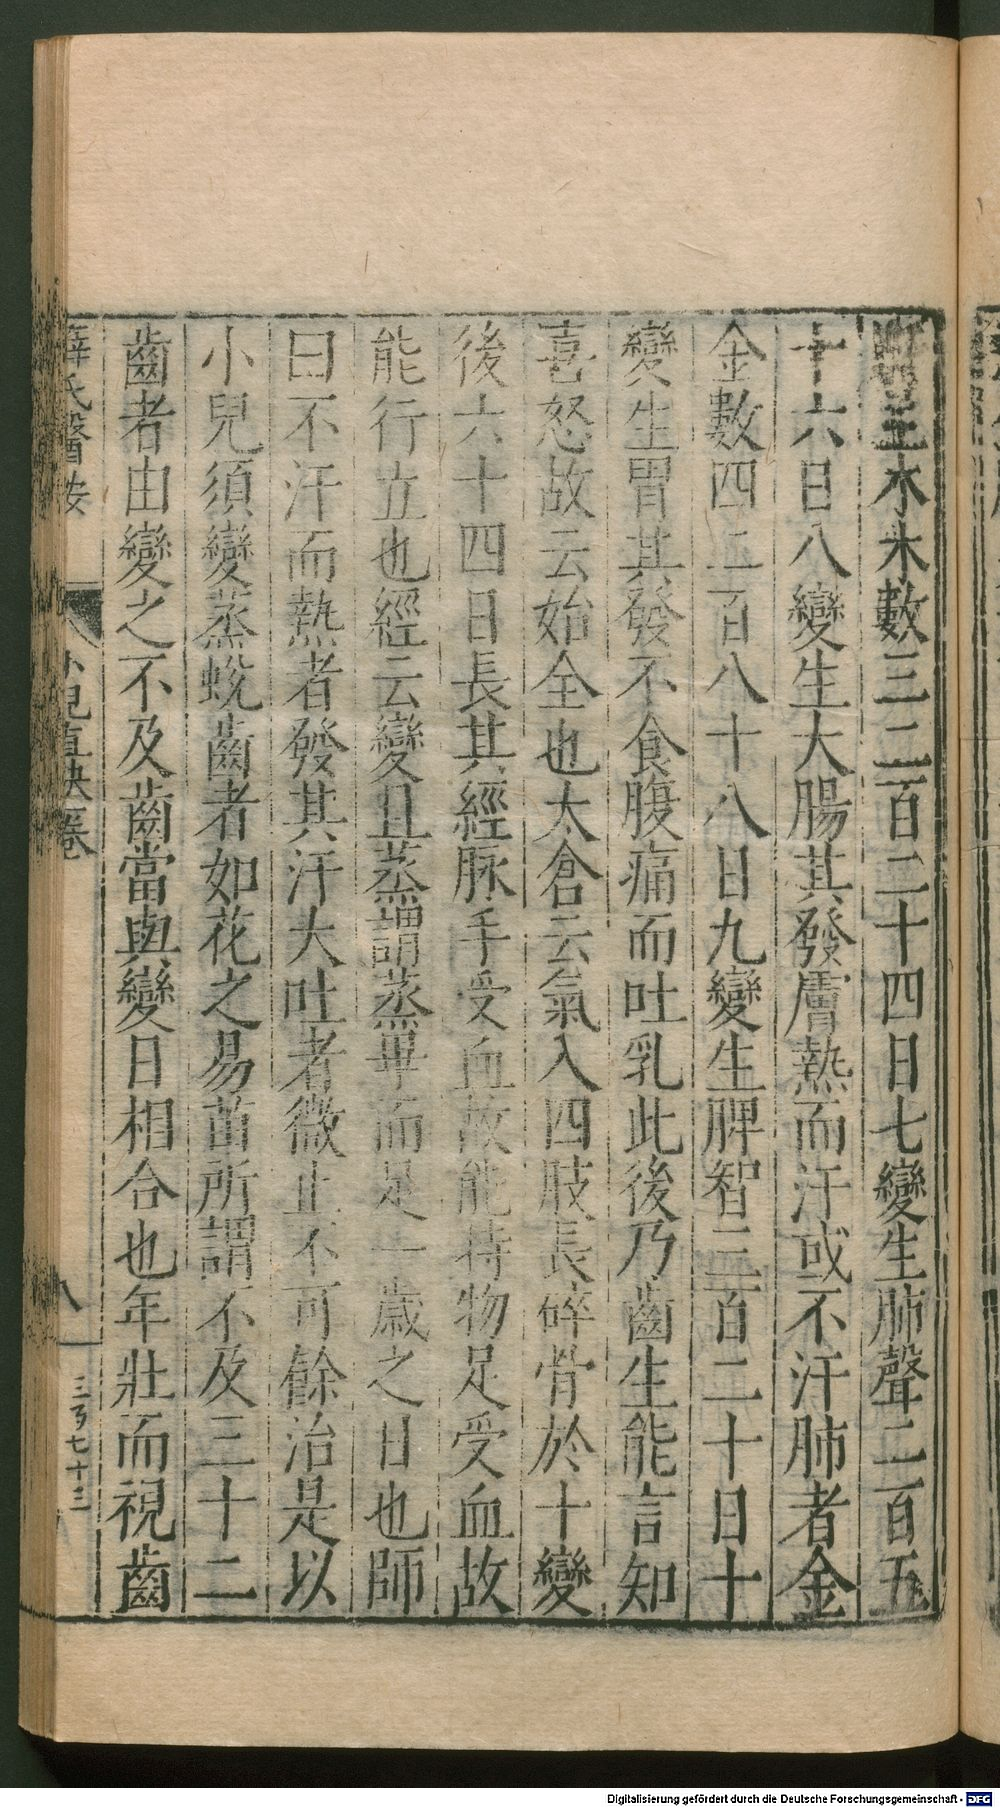 主水木數三二百二十四日七變生肺聲二百五
十六日八變生大腸其發膚熱而汗或不汗肺者金
金數四二百八十八日九變生脾智三百二十日十
變生胃其發不食腹痛而吐乳此後乃齒生能言知
喜怒故云始全也太倉云氣入四肢長碎骨於十變
後六十四日長其經脉手受血故能持物足受血故
能行立也經云變且蒸謂蒸畢而足一歲之日也師
曰不汗而熱者發其汗大吐者微止不可餘治是以
小兒須變蒸蛻齒者如花之易苗所謂不及三十二
齒者由變之不及齒當與變日相合也年壯而視齒
薛氏醫按
小兒直訣卷一
八
三百七十三
Digitalisierung gefördert durch die Deutsche Forschungsgemeinschaft - DFG